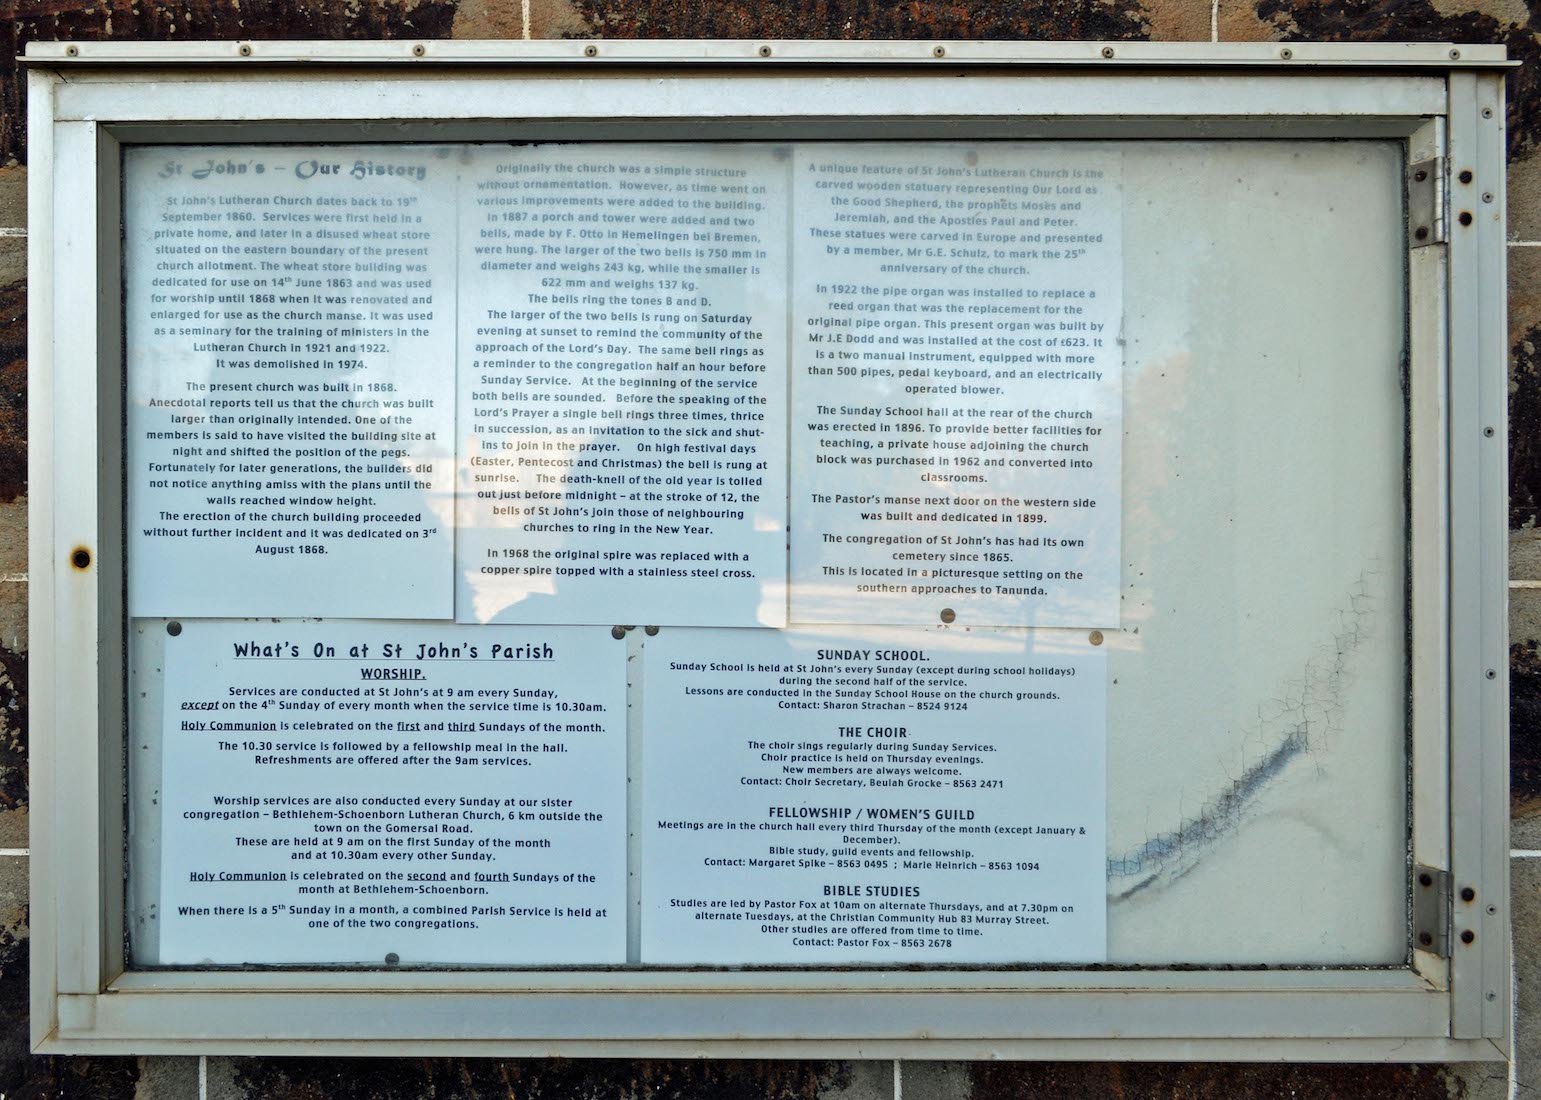 St John's – Our History
St John's Lutheran Church dates back to 19th
September 1860. Services were first held in a
private home, and later in a disused wheat store
situated on the eastern boundary of the present
church allotment. The wheat store building was
dedicated for use on 14th June 1863 and was used
for worship until 1868 when it was renovated and
enlarged for use as the church manse. It was used
as a seminary for the training of ministers in the
Lutheran Church in 1921 and 1922.
It was demolished in 1974.
The present church was built in 1868.
Anecdotal reports tell us that the church was built
larger than originally intended. One of the
members is said to have visited the building site at
night and shifted the position of the pegs.
Fortunately for later generations, the builders did
not notice anything amiss with the plans until the
walls reached window height.
The erection of the church building proceeded
without further incident and it was dedicated on 3rd
August 1868.
Originally the church was a simple structure
without ornamentation. However, as time went on
various improvements were added to the building.
In 1887 a porch and tower were added and two
bells, made by F. Otto in Hemelingen bei Bremen,
were hung. The larger of the two bells is 750 mm in
diameter and weighs 243 kg, while the smaller is
622 mm and weighs 137 kg.
The bells ring the tones B and D.
The larger of the two bells is rung on Saturday
evening at sunset to remind the community of the
approach of the Lord's Day. The same bell rings as
a reminder to the congregation half an hour before
Sunday Service. At the beginning of the service
both bells are sounded. Before the speaking of the
Lord's Prayer a single bell rings three times, thrice
in succession, as an invitation to the sick and shut-
ins to join in the prayer. On high festival days
(Easter, Pentecost and Christmas) the bell is rung at
sunrise. The death-knell of the old year is tolled
out just before midnight – at the stroke of 12, the
bells of St John's join those of neighbouring
churches to ring in the New Year.
In 1968 the original spire was replaced with a
copper spire topped with a stainless steel cross.
A unique feature of St John's Lutheran Church is the
carved wooden statuary representing Our Lord as
the Good Shepherd, the prophets Moses and
Jeremiah, and the Apostles Paul and Peter.
These statues were carved in Europe and presented
by a member, Mr G.E. Schulz, to mark the 25th
anniversary of the church.
In 1922 the pipe organ was installed to replace a
reed organ that was the replacement for the
original pipe organ. This present organ was built by
Mr J.E Dodd and was installed at the cost of £623. It
is a two manual instrument, equipped with more
than 500 pipes, pedal keyboard, and an electrically
operated blower.
The Sunday School hall at the rear of the church
was erected in 1896. To provide better facilities for
teaching, a private house adjoining the church
block was purchased in 1962 and converted into
classrooms.
The Pastor's manse next door on the western side
was built and dedicated in 1899.
The congregation of St John's has had its own
cemetery since 1865.
This is located in a picturesque setting on the
southern approaches to Tanunda.
What's On at St John's Parish
WORSHIP.
Services are conducted at St John's at 9 am every Sunday,
except on the 4th Sunday of every month when the service time is 10.30am.
Holy Communion is celebrated on the first and third Sundays of the month.
The 10.30 service is followed by a fellowship meal in the hall.
Refreshments are offered after the 9am services.
Worship services are also conducted every Sunday at our sister
congregation – Bethlehem-Schoenborn Lutheran Church, 6 km outside the
town on the Gomersal Road.
These are held at 9 am on the first Sunday of the month
and at 10.30am every other Sunday.
Holy Communion is celebrated on the second and fourth Sundays of the
month at Bethlehem-Schoenborn.
When there is a 5th Sunday in a month, a combined Parish Service is held at
one of the two congregations.
SUNDAY SCHOOL.
Sunday School is held at St John's every Sunday (except during school holidays)
during the second half of the service.
Lessons are conducted in the Sunday School House on the church grounds.
Contact: Sharon Strachan – 8524 9124
THE CHOIR
The choir sings regularly during Sunday Services.
Choir practice is held on Thursday evenings.
New members are always welcome.
Contact: Choir Secretary, Beulah Grocke – 8563 2471
FELLOWSHIP / WOMEN'S GUILD
Meetings are in the church hall every third Thursday of the month (except January &
December).
Bible study, guild events and fellowship.
Contact: Margaret Spike – 8563 0495 ; Marie Heinrich – 8563 1094
BIBLE STUDIES
Studies are led by Pastor Fox at 10am on alternate Thursdays, and at 7.30pm on
alternate Tuesdays, at the Christian Community Hub 83 Murray Street.
Other studies are offered from time to time.
Contact: Pastor Fox – 8563 2678